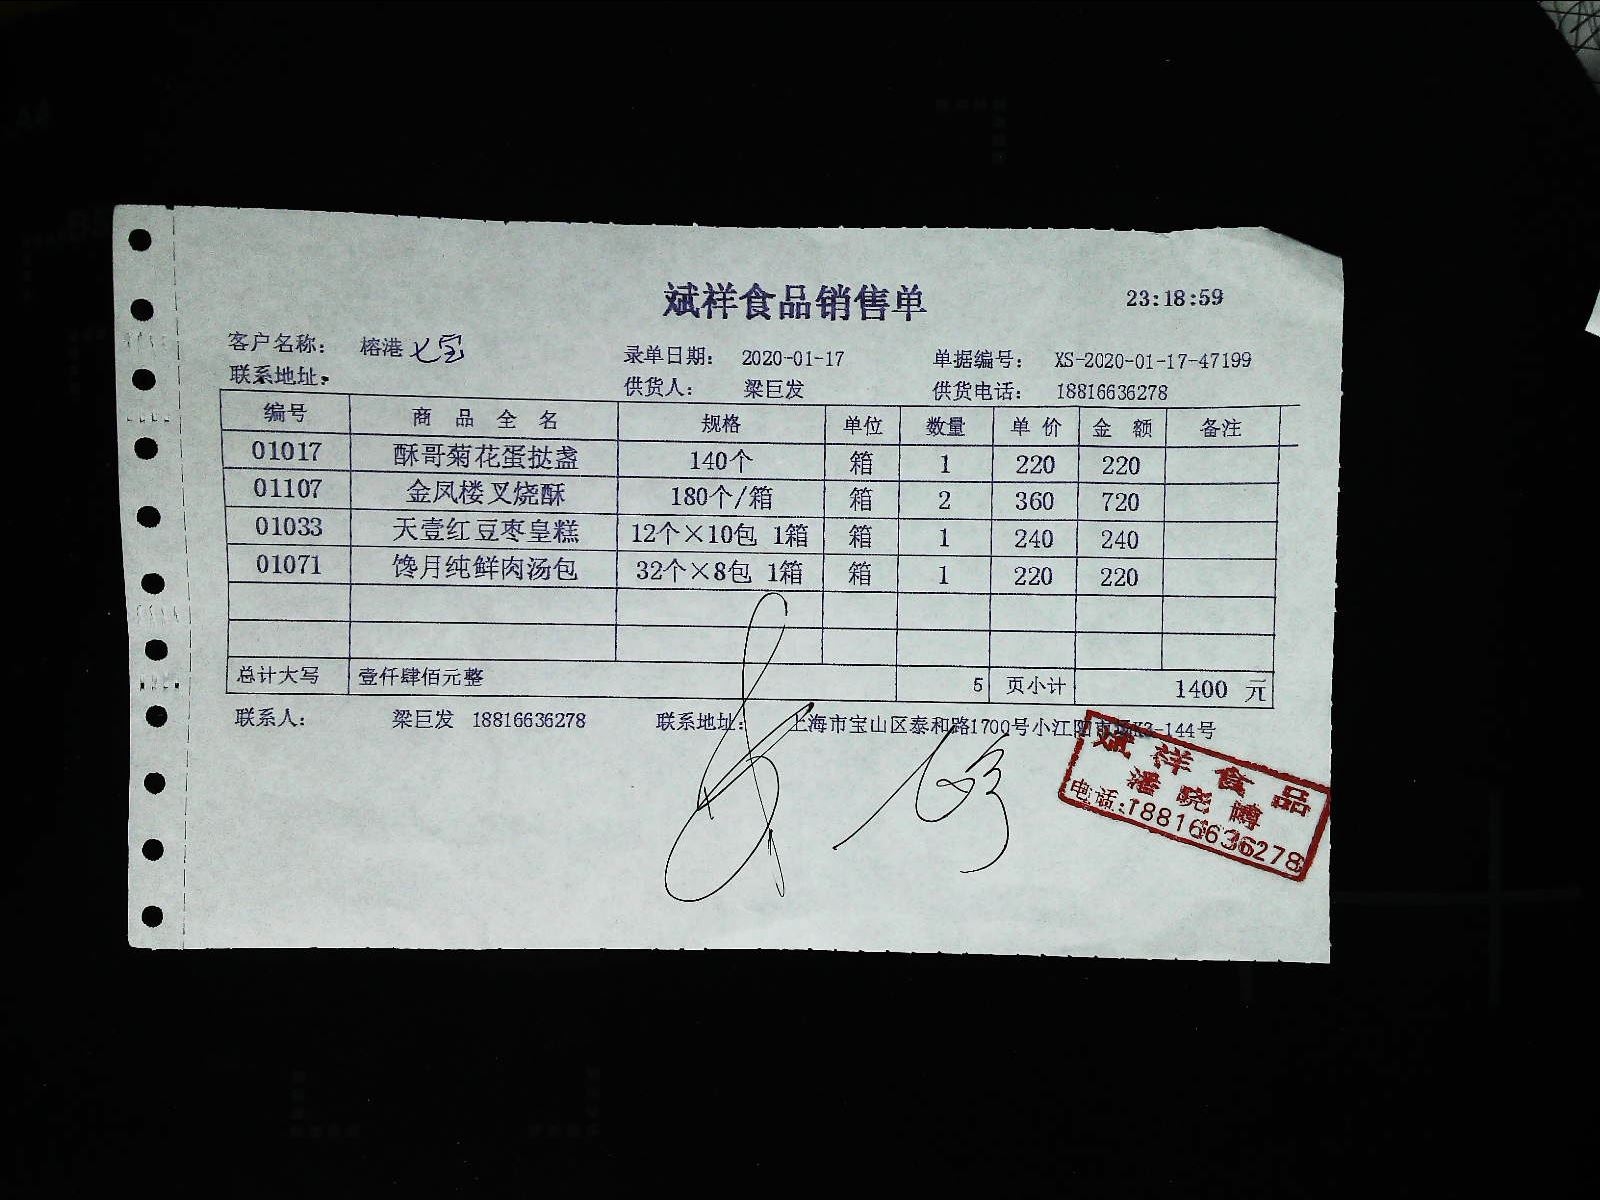 斌祥食品销售单 23:18:59
客户名称： 榕港 七宝 录单日期： 2020-01-17 单据编号： XS-2020-01-17-47199
联系地址： 供货人： 梁巨发 供货电话： 18816636278
编号 商品全名 规格 单位 数量 单价 金额 备注
01017 酥哥菊花蛋挞盏 140个 箱 1 220 220
01107 金凤楼叉烧酥 180个/箱 箱 2 360 720
01033 天壹红豆枣皇糕 12个×10包 1箱 箱 1 240 240
01071 馋月纯鲜肉汤包 32个×8包 1箱 箱 1 220 220
总计大写 壹仟肆佰元整 5 页小计 1400 元
联系人： 梁巨发 18816636278 联系地址： 上海市宝山区泰和路1700号小江阳市场K3-144号
斌祥食品
潘晓
电话:18816636278